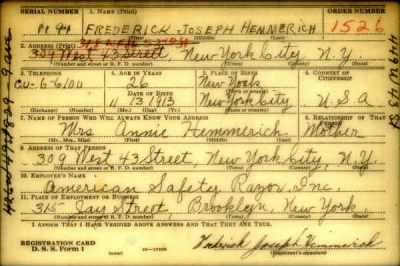 SERIAL NUMBER 1. NAME (Print) ORDER NUMBER
FREDERICK JOSEPH HEMMERICH 1526
2. ADDRESS (Print)
309 West 43 Street, New York City, N.Y.
(Number and street or R. F. D. number) (Town) (County) (State)
3. TELEPHONE 4. AGE IN YEARS 5. PLACE OF BIRTH 6. COUNTRY OF CITIZENSHIP
26 New York
CU-6-6100 DATE OF BIRTH
11 13 1913 New York City U.S.A.
(Exchange) (No.) (Mo.) (Day) (Yr.) (State or country)
7. NAME OF PERSON WHO WILL ALWAYS KNOW YOUR ADDRESS 8. RELATIONSHIP OF THAT PERSON
Mrs Annie Hemmerich Mother
(Mr., Mrs., Miss) (First) (Middle) (Last)
9. ADDRESS OF THAT PERSON
309 West 43 Street, New York City, N.Y.
(Number and street or R. F. D. number) (Town) (County) (State)
10. EMPLOYER'S NAME
American Safety Razor Inc.
11. PLACE OF EMPLOYMENT OR BUSINESS
315 Jay Street, Brooklyn, New York.
(Number and street or R. F. D. number) (Town) (County) (State)
I AFFIRM THAT I HAVE VERIFIED ABOVE ANSWERS AND THAT THEY ARE TRUE.
REGISTRATION CARD
D. S. S. Form 1 Frederick Joseph Hemmerich